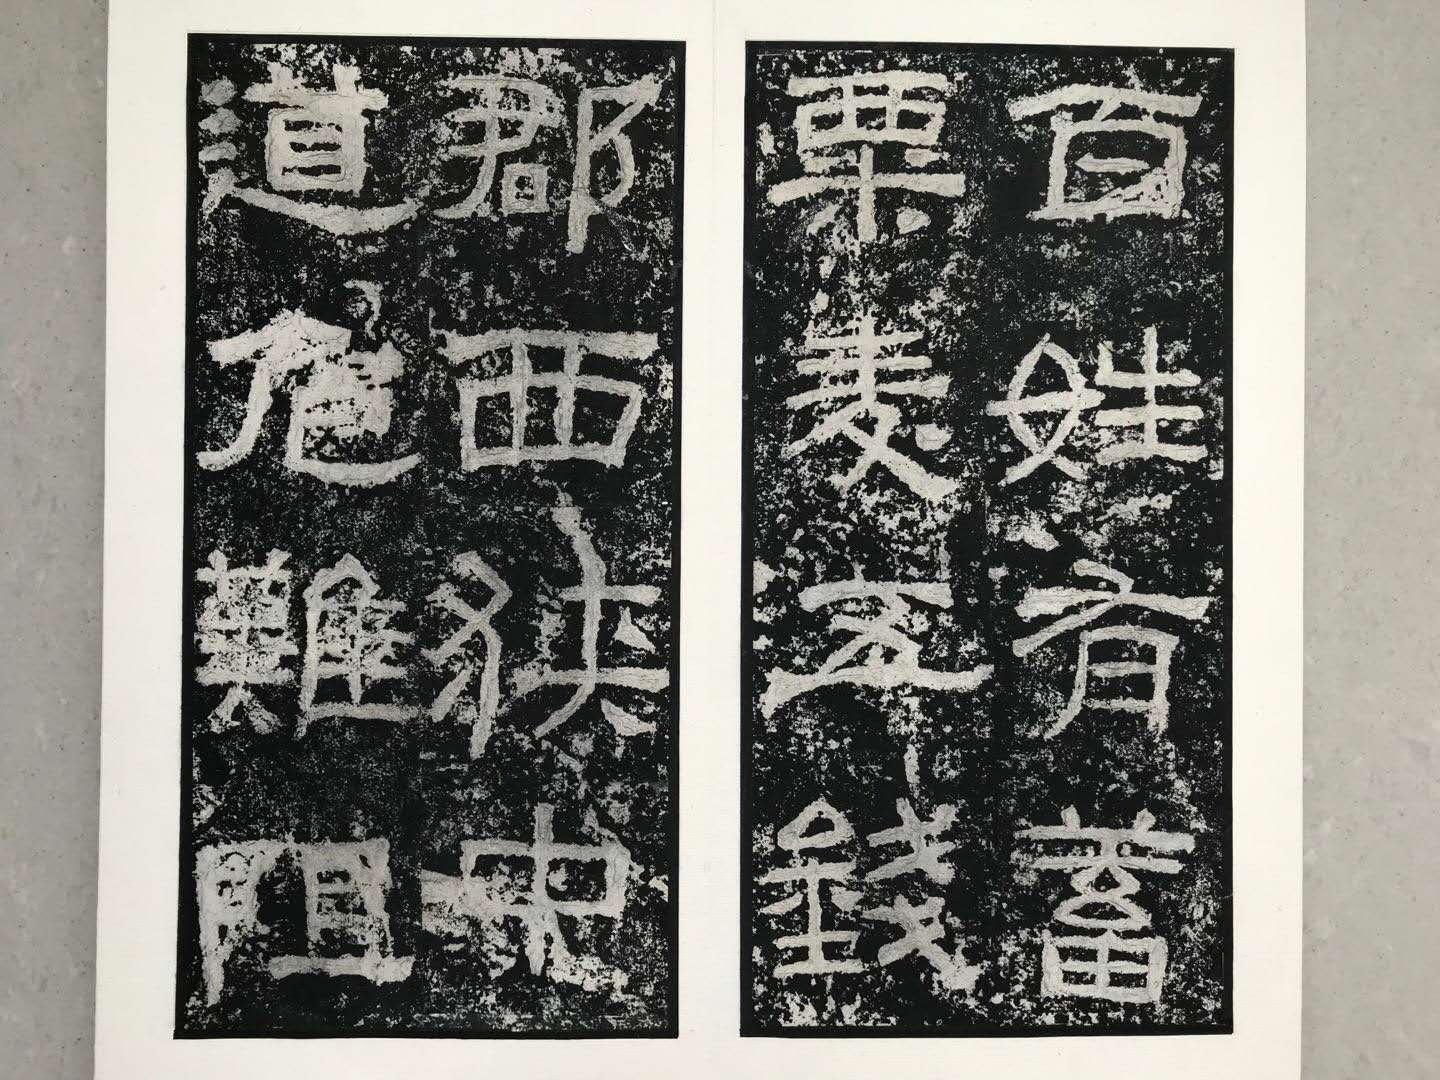 百姓有蓄
粟麦五錢
郡西狭中
道危難阻